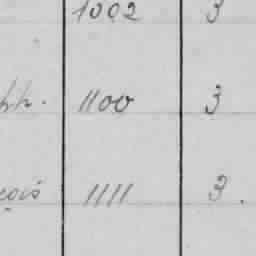 1002 3
hh. 1100 3
çois 1111 3.